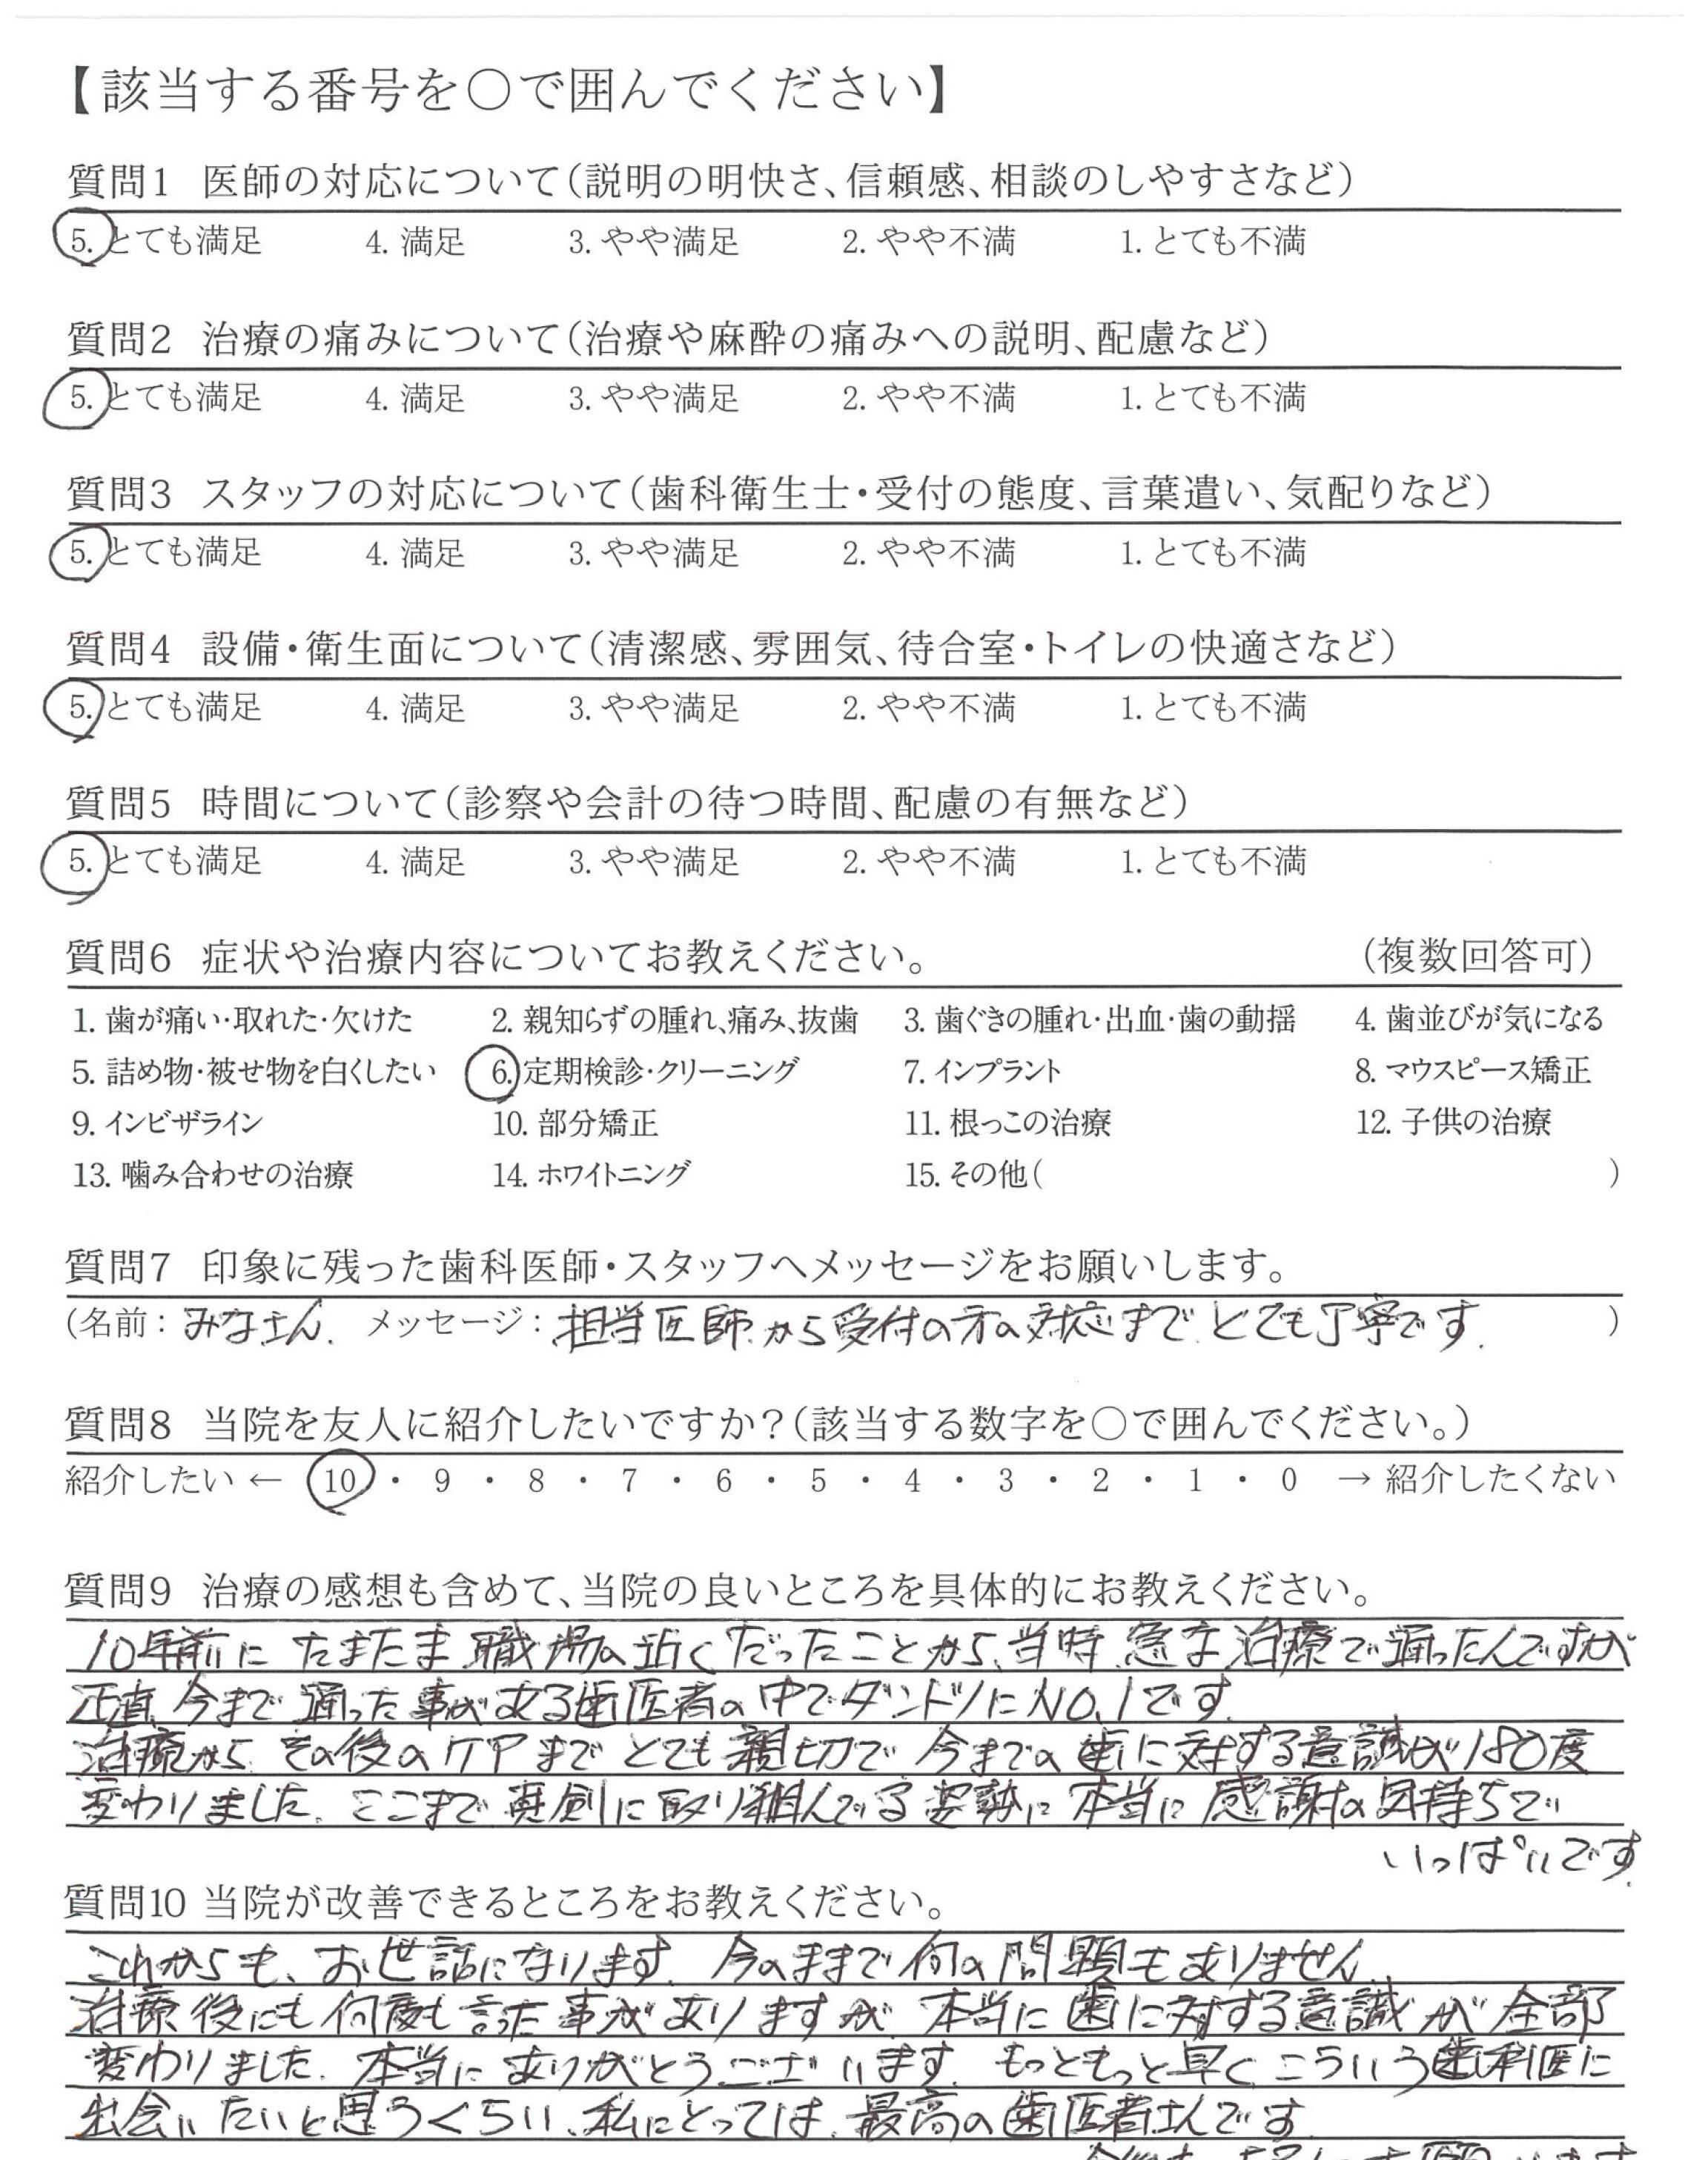 【該当する番号を○で囲んでください】
質問1 医師の対応について（説明の明快さ、信頼感、相談のしやすさなど）
5. とても満足 4. 満足 3. やや満足 2. やや不満 1. とても不満
質問2 治療の痛みについて（治療や麻酔の痛みへの説明、配慮など）
5. とても満足 4. 満足 3. やや満足 2. やや不満 1. とても不満
質問3 スタッフの対応について（歯科衛生士・受付の態度、言葉遣い、気配りなど）
5. とても満足 4. 満足 3. やや満足 2. やや不満 1. とても不満
質問4 設備・衛生面について（清潔感、雰囲気、待合室・トイレの快適さなど）
5. とても満足 4. 満足 3. やや満足 2. やや不満 1. とても不満
質問5 時間について（診察や会計の待つ時間、配慮の有無など）
5. とても満足 4. 満足 3. やや満足 2. やや不満 1. とても不満
質問6 症状や治療内容についてお教えください。 （複数回答可）
1. 歯が痛い・取れた・欠けた 2. 親知らずの腫れ、痛み、抜歯 3. 歯ぐきの腫れ・出血・歯の動揺 4. 歯並びが気になる
5. 詰め物・被せ物を白くしたい 6. 定期検診・クリーニング 7. インプラント 8. マウスピース矯正
9. インビザライン 10. 部分矯正 11. 根っこの治療 12. 子供の治療
13. 噛み合わせの治療 14. ホワイトニング 15. その他（ ）
質問7 印象に残った歯科医師・スタッフへメッセージをお願いします。
（名前：みなさん． メッセージ：担当医師から受付の方の対応まで とても丁寧です．）
質問8 当院を友人に紹介したいですか？（該当する数字を○で囲んでください。）
紹介したい ← 10 ・ 9 ・ 8 ・ 7 ・ 6 ・ 5 ・ 4 ・ 3 ・ 2 ・ 1 ・ 0 → 紹介したくない
質問9 治療の感想も含めて、当院の良いところを具体的にお教えください。
10年前に たまたま 職場の近くだったことから、当時 急な治療で通ったんですが
正直 今まで 通った事がある歯医者の中でダントツにNO.1です．
治療から その後のケアまで とても親切で 今までの歯に対する意識が180度
変わりました．ここまで真剣に取り組んでる姿勢に 本当に感謝の気持ちで
いっぱいです．
質問10 当院が改善できるところをお教えください。
これからも、お世話になります．今のままで何の問題もありません．
治療後にも何度も言った事がありますが 本当に歯に対する意識が全部
変わりました．本当にありがとうございます．もっともっと早くこういう歯科医に
出会いたいと思うくらい、私にとっては、最高の歯医者さんです